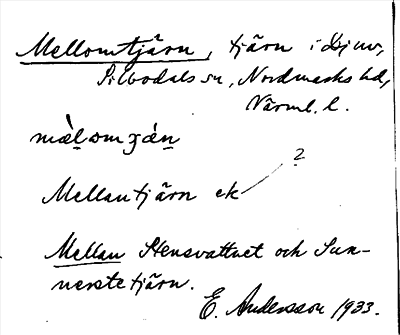 Mellomtjärn, tjärn i
Silbodals sn, Nordmarks hd,
Värml. l.
Mellantjärn ek
?
Mellan Stensvattnet och Sun-
nerstetjärn.
E. Andersson 1933.